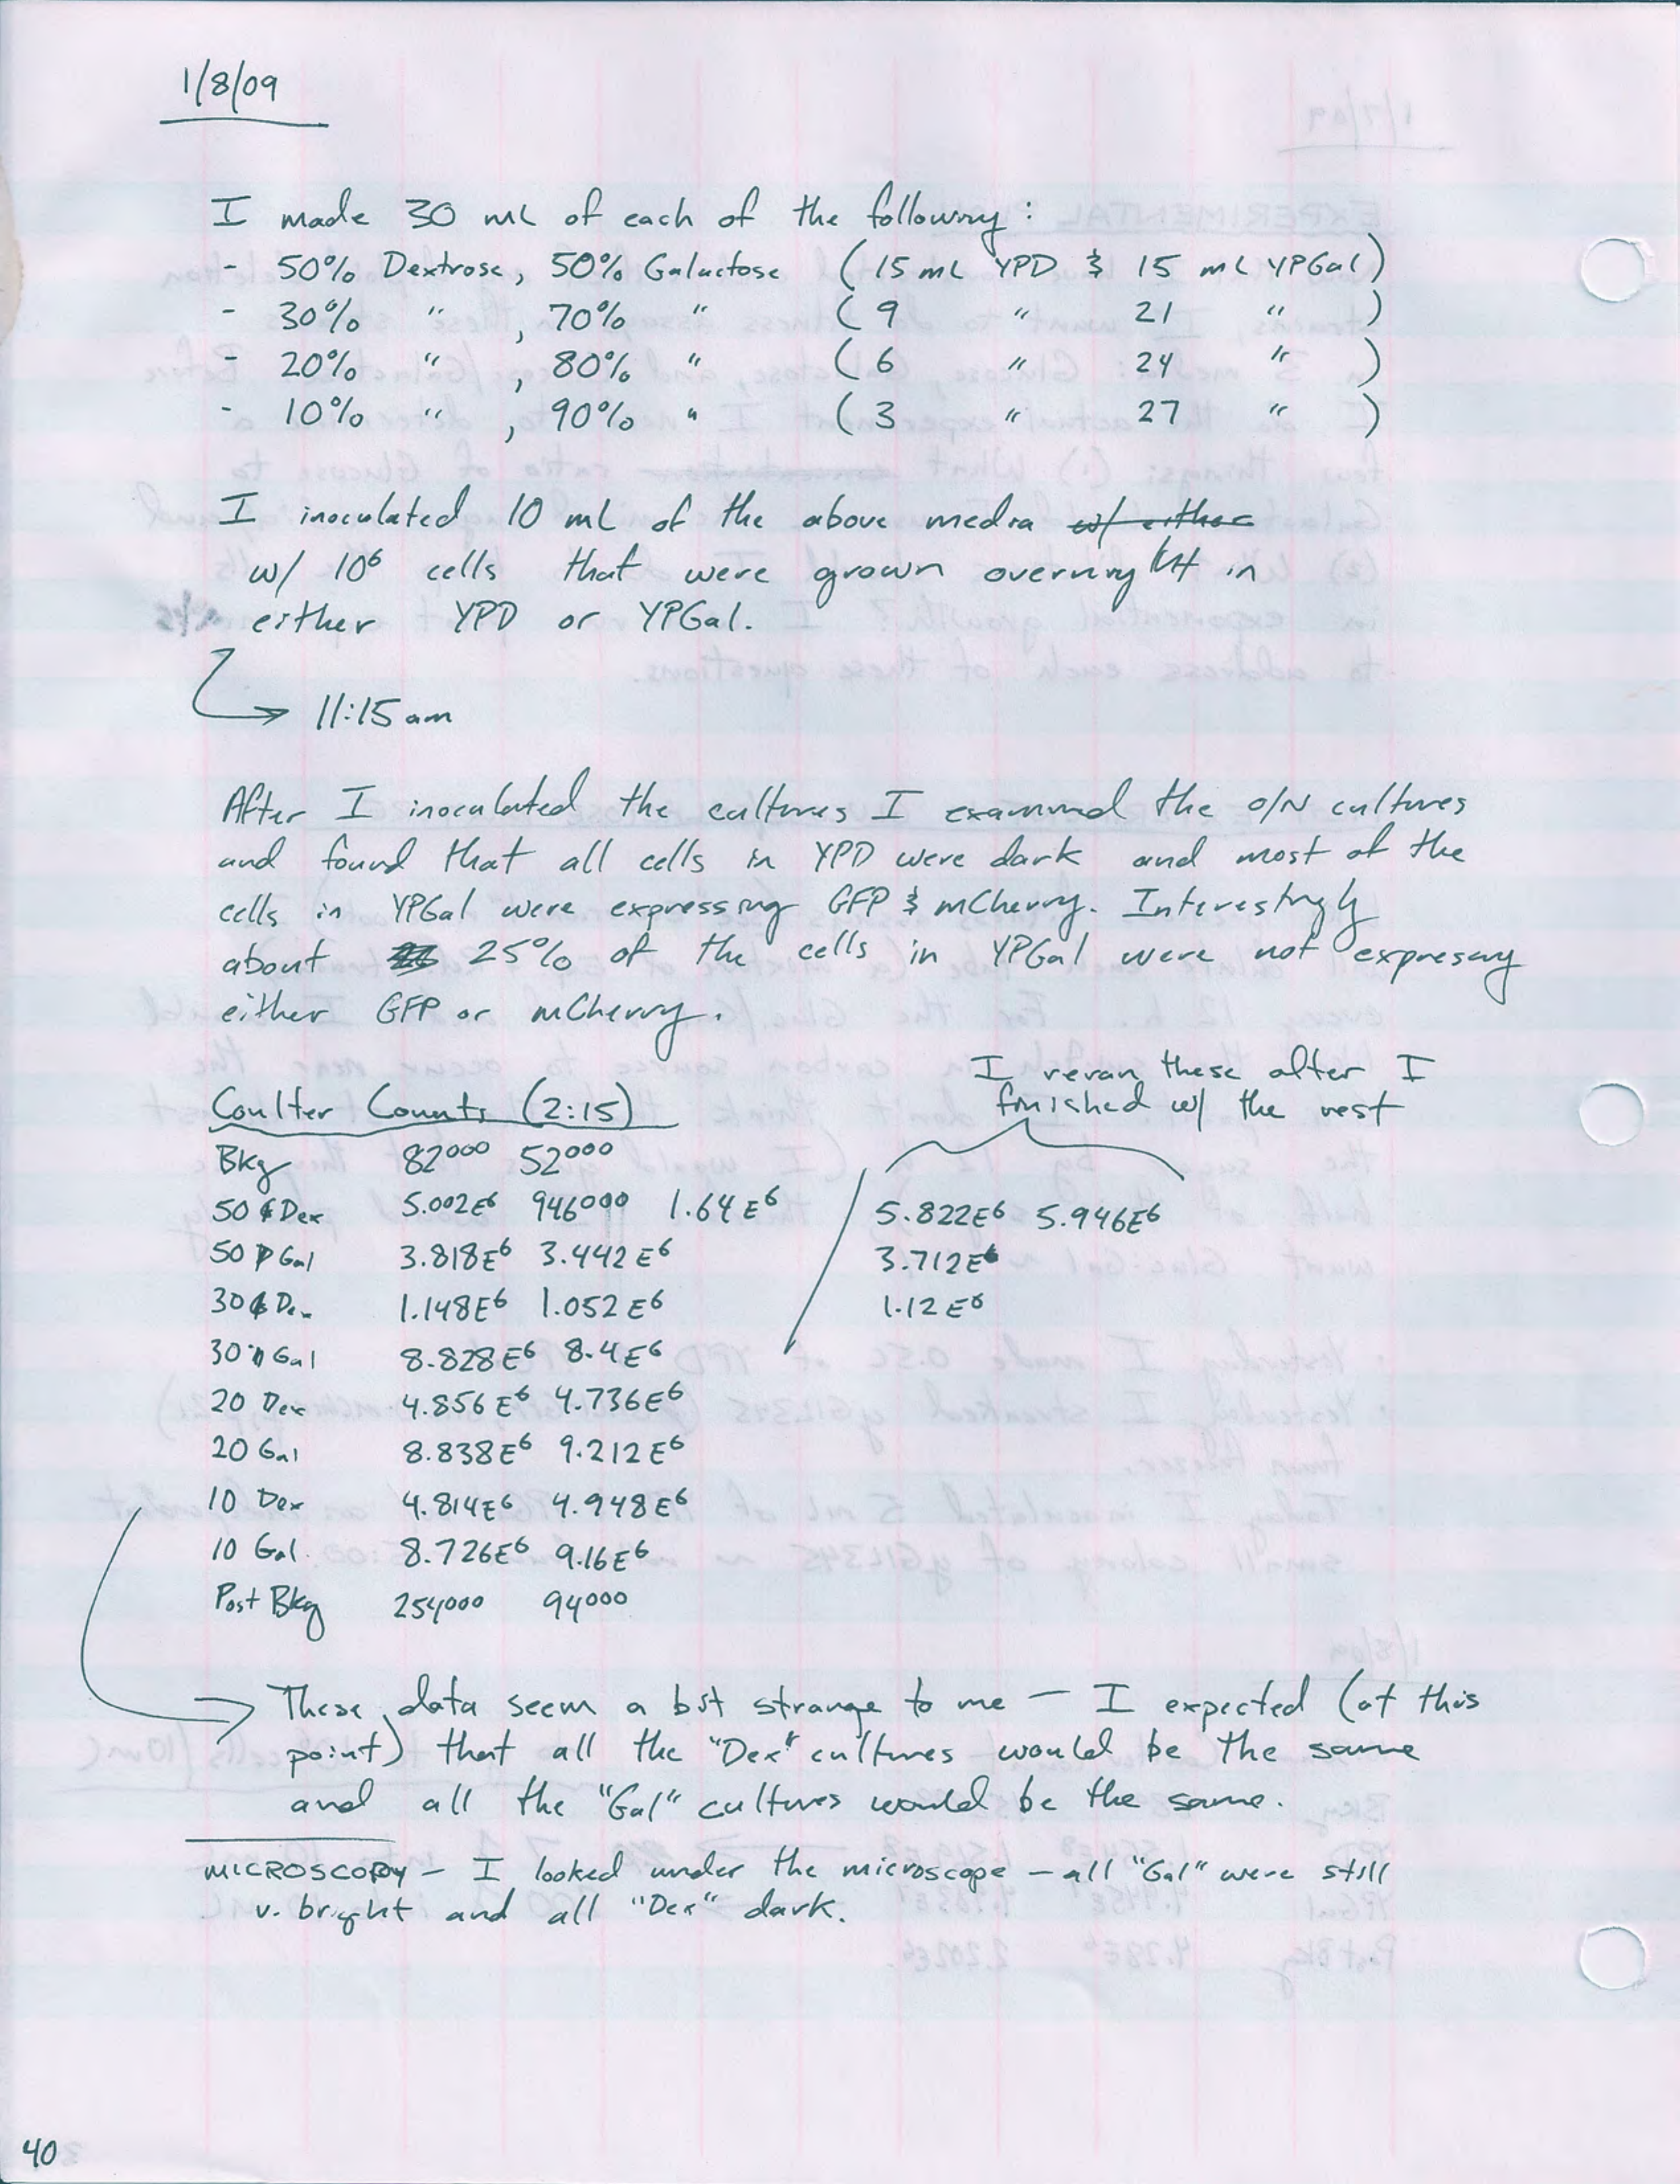 1/8/09
I made 30 mL of each of the following:
- 50% Dextrose, 50% Galactose (15 mL YPD & 15 mL YPGal)
- 30% " , 70% " (9 " 21 " )
- 20% " , 80% " (6 " 24 " )
- 10% " , 90% " (3 " 27 " )
I inoculated 10 mL of the above media w/ either
w/ 10⁶ cells that were grown overnight in
either YPD or YPGal.
→ 11:15 am
After I inoculated the cultures I examined the O/N cultures
and found that all cells in YPD were dark and most of the
cells in YPGal were expressing GFP & mCherry. Interestingly
about 25% of the cells in YPGal were not expressing
either GFP or mCherry.
I reran these after I
finished w/ the rest
Coulter Counts (2:15)
Bkg 82000 52000
50 Dex 5.002E6 946000 1.64E6 5.822E6 5.946E6
50 Gal 3.818E6 3.442E6 3.712E6
30 Dex 1.148E6 1.052E6 1.12E6
30 Gal 8.828E6 8.4E6
20 Dex 4.856E6 4.736E6
20 Gal 8.838E6 9.212E6
10 Dex 4.814E6 4.948E6
10 Gal. 8.726E6 9.16E6
Post Bkg 254000 94000
→ These data seem a bit strange to me — I expected (at this
point) that all the "Dex" cultures would be the same
and all the "Gal" cultures would be the same.
MICROSCOPY - I looked under the microscope - all "Gal" were still
v. bright and all "Dex" dark.
40